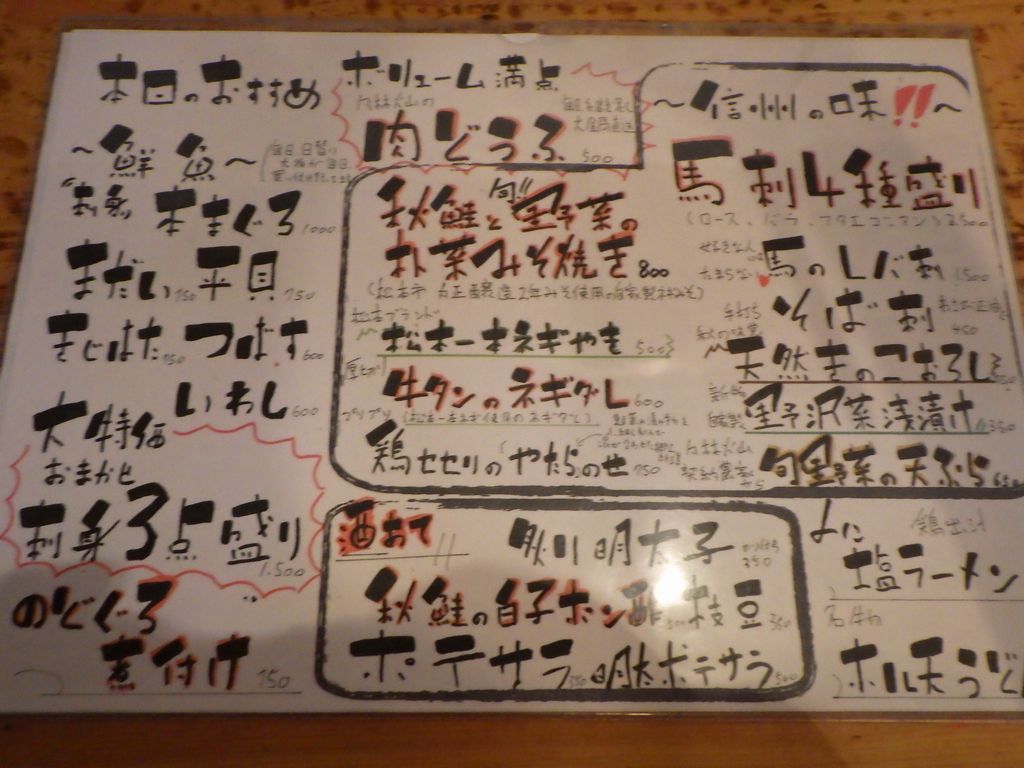 本日のおすすめ
～鮮魚～
刺身 本まぐろ 1000
まだい 750 平貝 750
きじはた 750 つばす 600
いわし 600
大特価
おまかせ
刺身3点盛り
1.500
のどぐろ
煮付け 750
ボリューム満点
肉どうふ 500
～信州の味!!～
馬刺4種盛り
(ロース、バラ、フタエゴ、タン) 2500
好きな人には
たまらない
馬のレバ刺 1.500
手打ち
そば刺
450
秋の味覚
天然きのこおろし
自家製
野沢菜浅漬け 350
契約農家から
旬野菜の天ぷら
秋鮭と旬野菜の
朴葉みそ焼き 800
(松本市 大正蔵製造2年みそ使用の自家製ねりみそ)
松本ブランド
松本一本ネギやき 500
厚切り
牛タンのネギダレ 600
(松本一本ネギ使用のネギダレ)
プリプリ
鶏セセリのやたらのせ 750
酒あて
炙り明太子
350
秋鮭の白子ポン酢 枝豆 350
ポテサラ 明太ポテサラ 500
〆に
鶏出汁
塩ラーメン
名物
ホルモンうどん